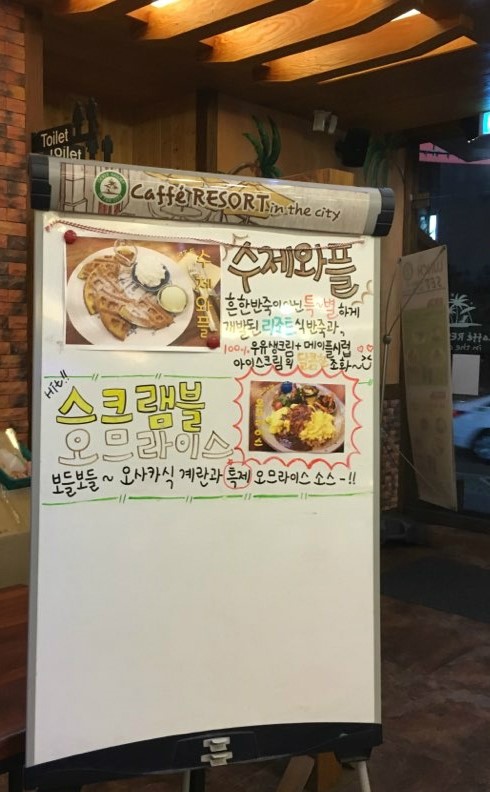 Toilet
Caffé RESORT in the city
수제와플
수제와플
흔한반죽이아닌 특★별하게
개발된 리조트식반죽과,
100% 우유생크림 + 메이플시럽
아이스크림의 달콤한 조화~
HIt!!
스크램블
오므라이스
보들보들 ~ 오사카식 계란과 특제 오므라이스 소스 -!!